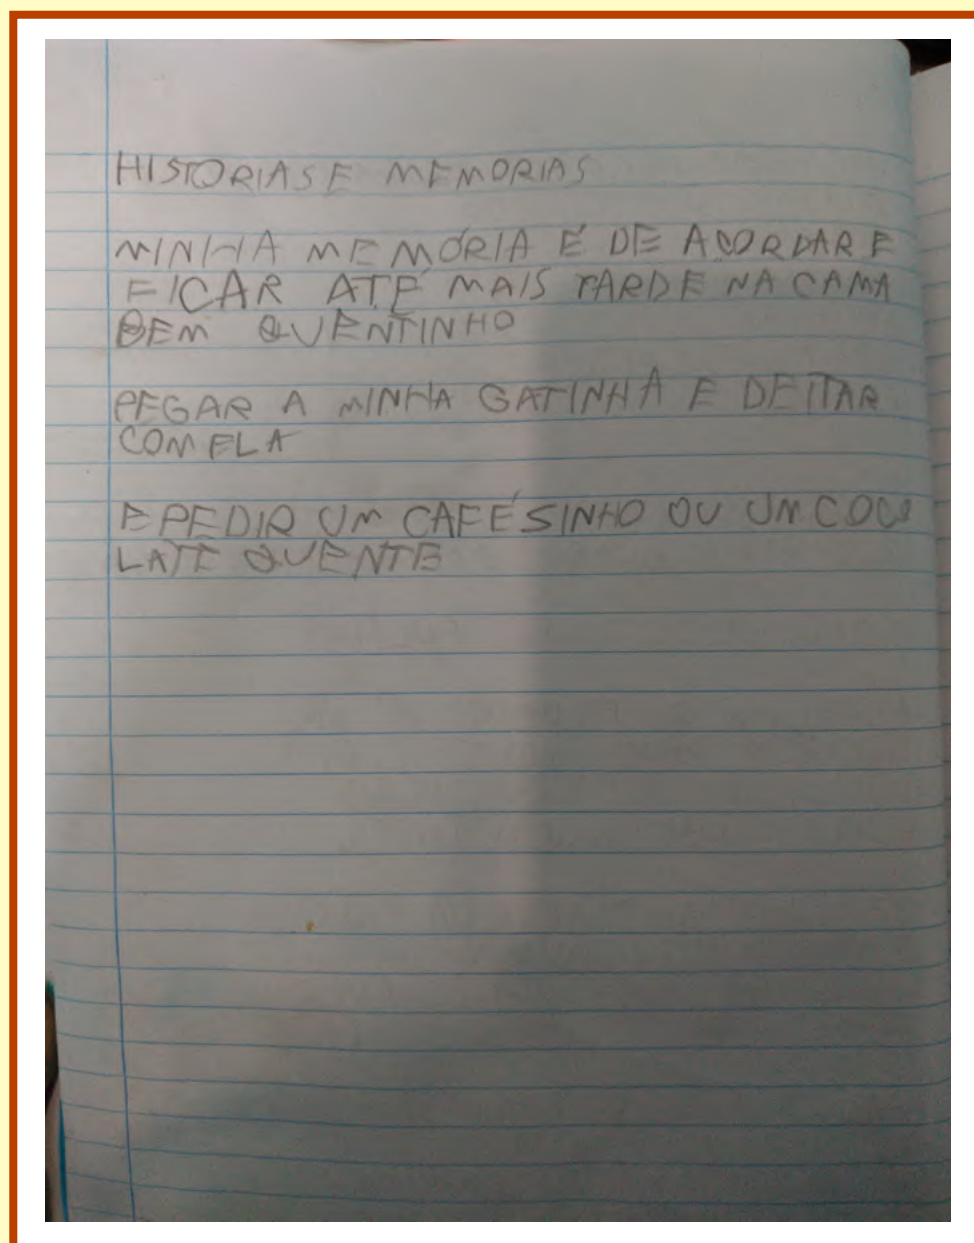 HISTORIAS E MEMORIAS
MINHA MEMÓRIA É DE ACORDAR E
FICAR ATÉ MAIS TARDE NA CAMA
BEM QUENTINHO
PEGAR A MINHA GATINHA E DEITAR
COM ELA
E PEDIR UM CAFÉSINHO OU UM COCO
LATE QUENTE